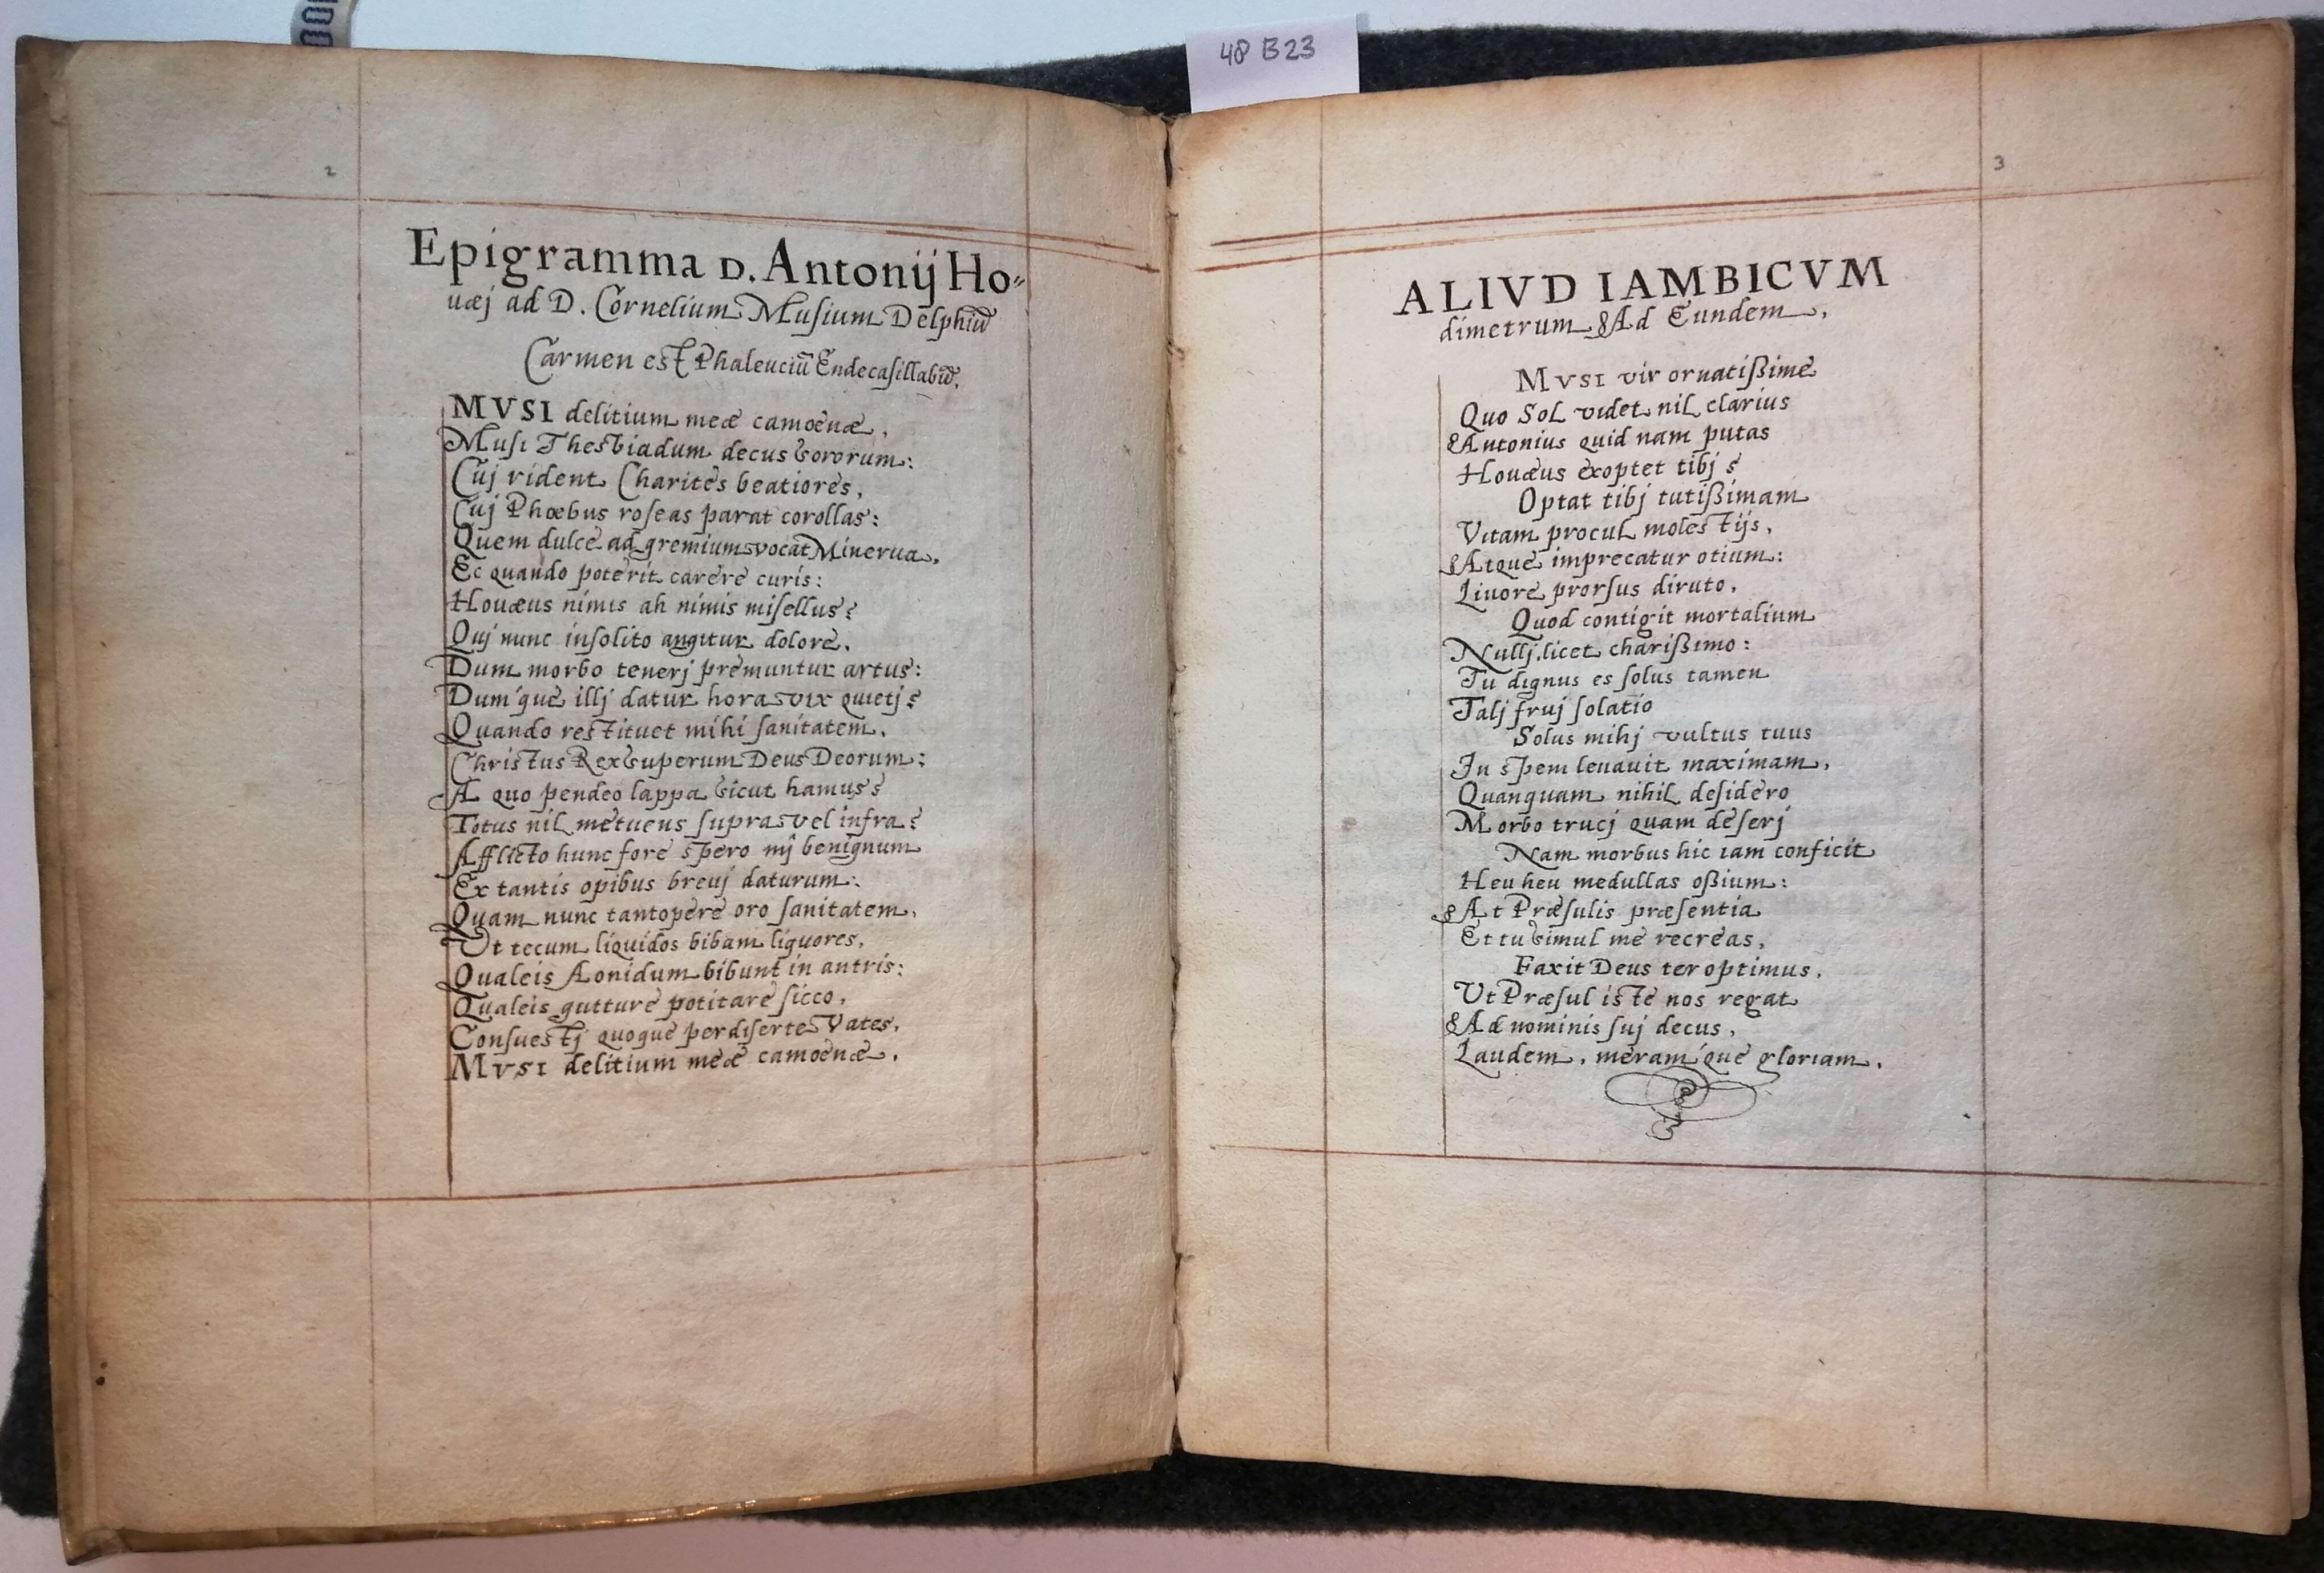 48 B23
2
Epigramma D. Antonij Ho⸗
uæj ad D. Cornelium Musium Delphiū
Carmen est Phaleuciū Endecasillabū.
MVSI delitium meæ camoenæ,
Musi Thesbiadum decus sororum:
Cuj rident Charites beatiores,
Cuj Phœbus roseas parat corollas:
Quem dulce ad gremium vocat Minerua,
Ec quando poterit carere curis:
Houæus nimis ah nimis misellus?
Quj nunc insolito angitur dolore,
Dum morbo tenerj premuntur artus:
Dum'que illj datur hora vix quietj?
Quando restituet mihi sanitatem,
Christus Rex superum Deus Deorum:
A quo pendeo lappa sicut hamus?
Totus nil metuens supra vel infra?
Afflicto hunc fore spero mj benignum
Ex tantis opibus breuj daturum:
Quam nunc tantopere oro sanitatem,
Ut tecum liquidos bibam liquores,
Qualeis Aonidum bibunt in antris:
Qualeis gutture potitare sicco,
Consuestj quoque perdiserte Vates,
MVSI delitium meæ camoenæ.
3
ALIVD IAMBICVM
dimetrum Ad Eundem.
MVSI vir ornatißime
Quo Sol videt nil clarius
Antonius quid nam putas
Houæus exoptet tibj?
Optat tibj tutißimam
Vitam procul molestijs,
Atque imprecatur otium:
Liuore prorsus diruto,
Quod contigit mortalium
Nullj, licet charißimo:
Tu dignus es solus tamen
Talj fruj solatio
Solus mihj vultus tuus
In spem leuauit maximam,
Quanquam nihil desidero
Morbo trucj quam deserj
Nam morbus hic iam conficit
Heu heu medullas oßium:
At Præsulis præsentia
Et tu simul me recreas,
Faxit Deus ter optimus,
Ut Præsul iste nos regat
Ad nominis suj decus,
Laudem, meram'que gloriam.